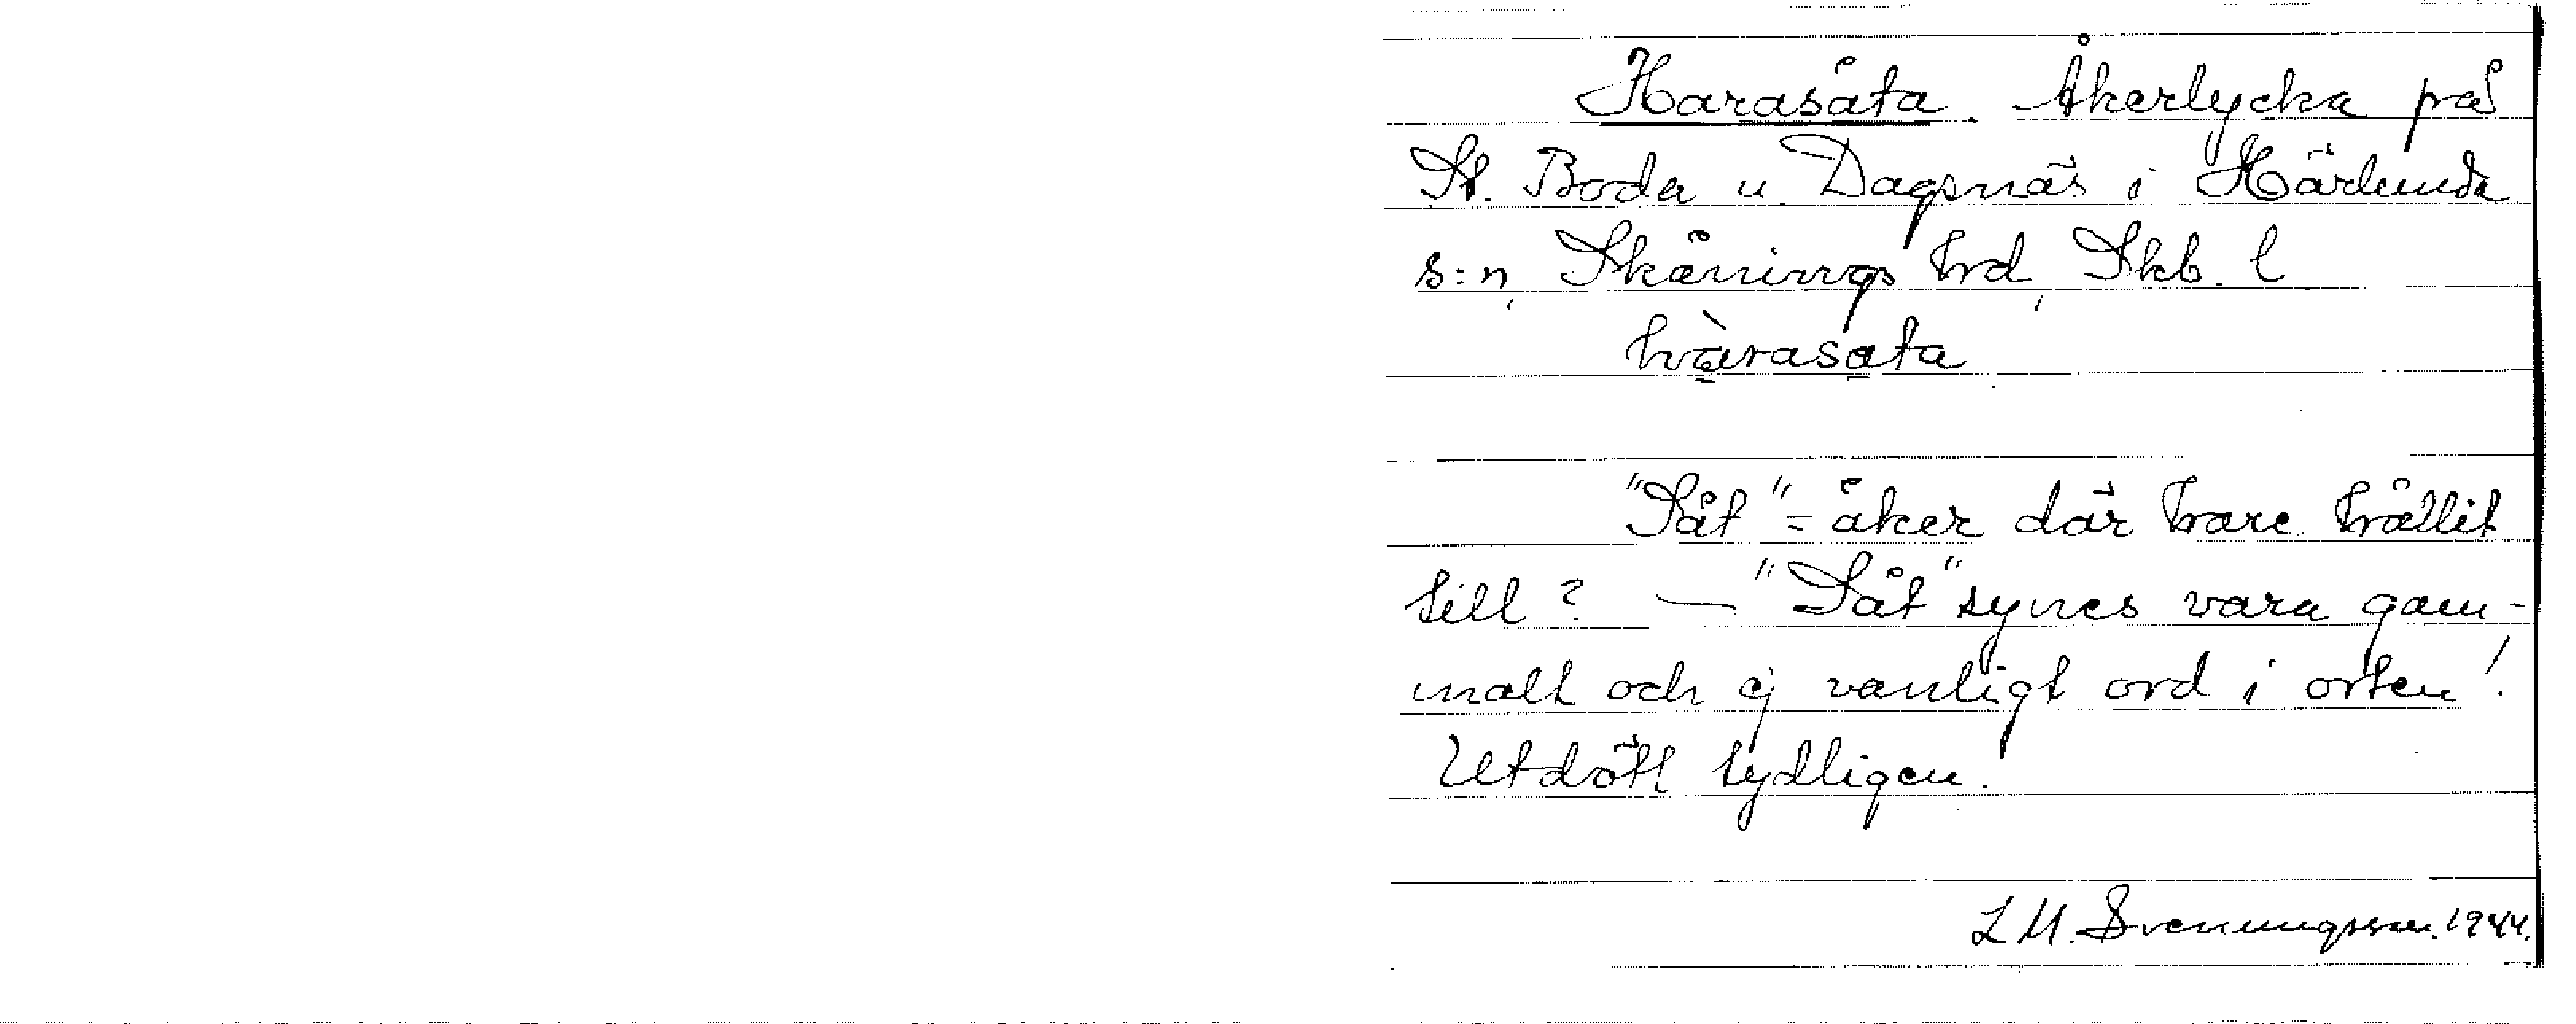 Haråsåta. Åkerlycka på
St. Boda u. Dagsnäs i Härlunda
s:n, Skånings hrd, Skb. l
hàrasata
"Såt" = åker där hare hållit
till? — "Såt" synes vara gam-
malt och ej vanligt ord i orten!
Utdött tydligen.
L M. Svenungsson. 1944.